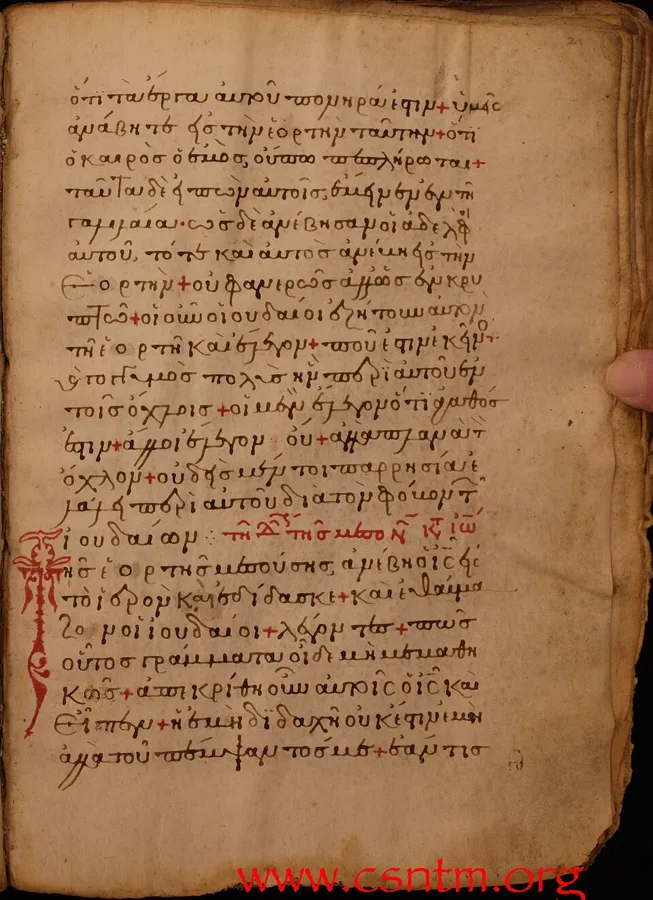 ὅτι τὰ ἔργα αὐτοῦ πονηρά ἐστιν + ὑμεῖς
ἀνάβητε εἰς τὴν ἑορτὴν ταύτην + ὅτι
ὁ καιρὸς ὁ ἐμὸς, οὔπω πεπλήρωται +
ταῦτα δὲ εἰπὼν αὐτοῖς, ἔμεινεν ἐν τῆ
γαλιλαία · ὡς δὲ ἀνέβησαν οἱ ἀδελφοὶ
αὐτοῦ, τότε καὶ αὐτὸς ἀνέβη εἰς τὴν
ἑορτὴν + οὐ φανερῶς ἀλλ' ὡς ἐν κρυ
πτῶ + οἱ οὖν ἰουδαῖοι ἐζήτουν αὐτὸν
τῆ ἑορτῆ καὶ ἔλεγον + ποῦ ἐστιν ἐκεῖνο
πολὺς ἦν περὶ αὐτοῦ ἐν
τοῖς ὄχλοις + οἱ μὲν ἔλεγον ὅτι ἀγαθός
ἐστιν + ἄλλοι ἔλεγον οὔ + ἀλλὰ πλανᾶ τ
ὄχλον + οὐδεὶς μέντοι παρρησία ἐ
λάλει περὶ αὐτοῦ διὰ τὸν φόβον τ
ἰουδαίων : τῆ Δ τῆς μεσο
Τῆς ἑορτῆς μεσούσης, ἀνέβη ὁ ις εἰς
τὸ ἱερὸν καὶ ἐδίδασκε + καὶ ἐθαύμα
ζον οἱ ἰουδαῖοι + λέγοντες + πῶς
οὗτος γράμματα οἶδε μὴ μεμαθη
κῶς + ἀπεκρίθη οὖν αὐτοῖς ὁ ις καὶ
εἶπεν + ἡ ἐμὴ διδαχὴ οὐκ ἔστιν ἐμὴ
ἀλλὰ τοῦ πέμψαντός με + ἐάν τις
www.csntm.org